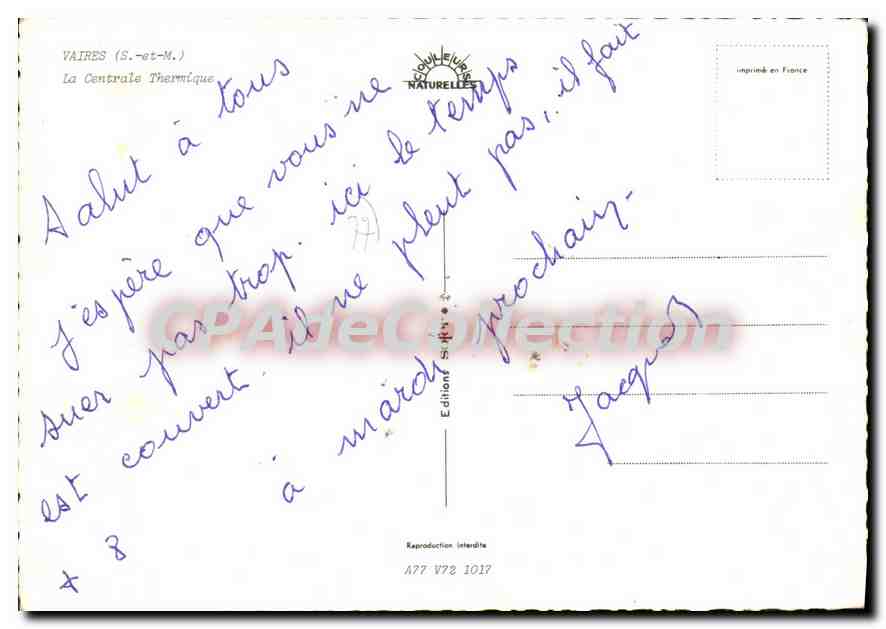 VAIRES (S.-et-M.)
La Centrale Thermique
COULEURS
NATURELLES
imprimé en France
Salut à tous
j'espère que vous ne
suer pas trop. ici le temps
est couvert. il ne pleut pas, il fait
+ 8 à mardi prochain.
Jacques
CPAdeCollection
Editions
Reproduction interdite
A77 V72 1017